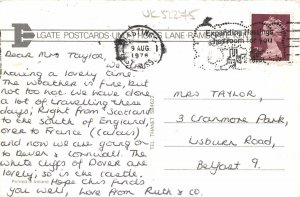 UK52275
ELGATE POSTCARDS
LANE
9 AUG
1978
Expanding Hastings
Dear Mrs Taylor,
We're
having a lovely time.
The weather is fine, but
not too hot. We have done
a lot of travelling these
days; Right from Scotland
to the South of England,
over to France (Calais)
and now we are going on
to Devon & Cornwall. The
white cliffs of Dover are
lovely; so is the castle.
Hope this finds
you well, love from Ruth & co.
MRS TAYLOR,
3 CRANMORE PARK,
LISBURN ROAD,
BELFAST 9.